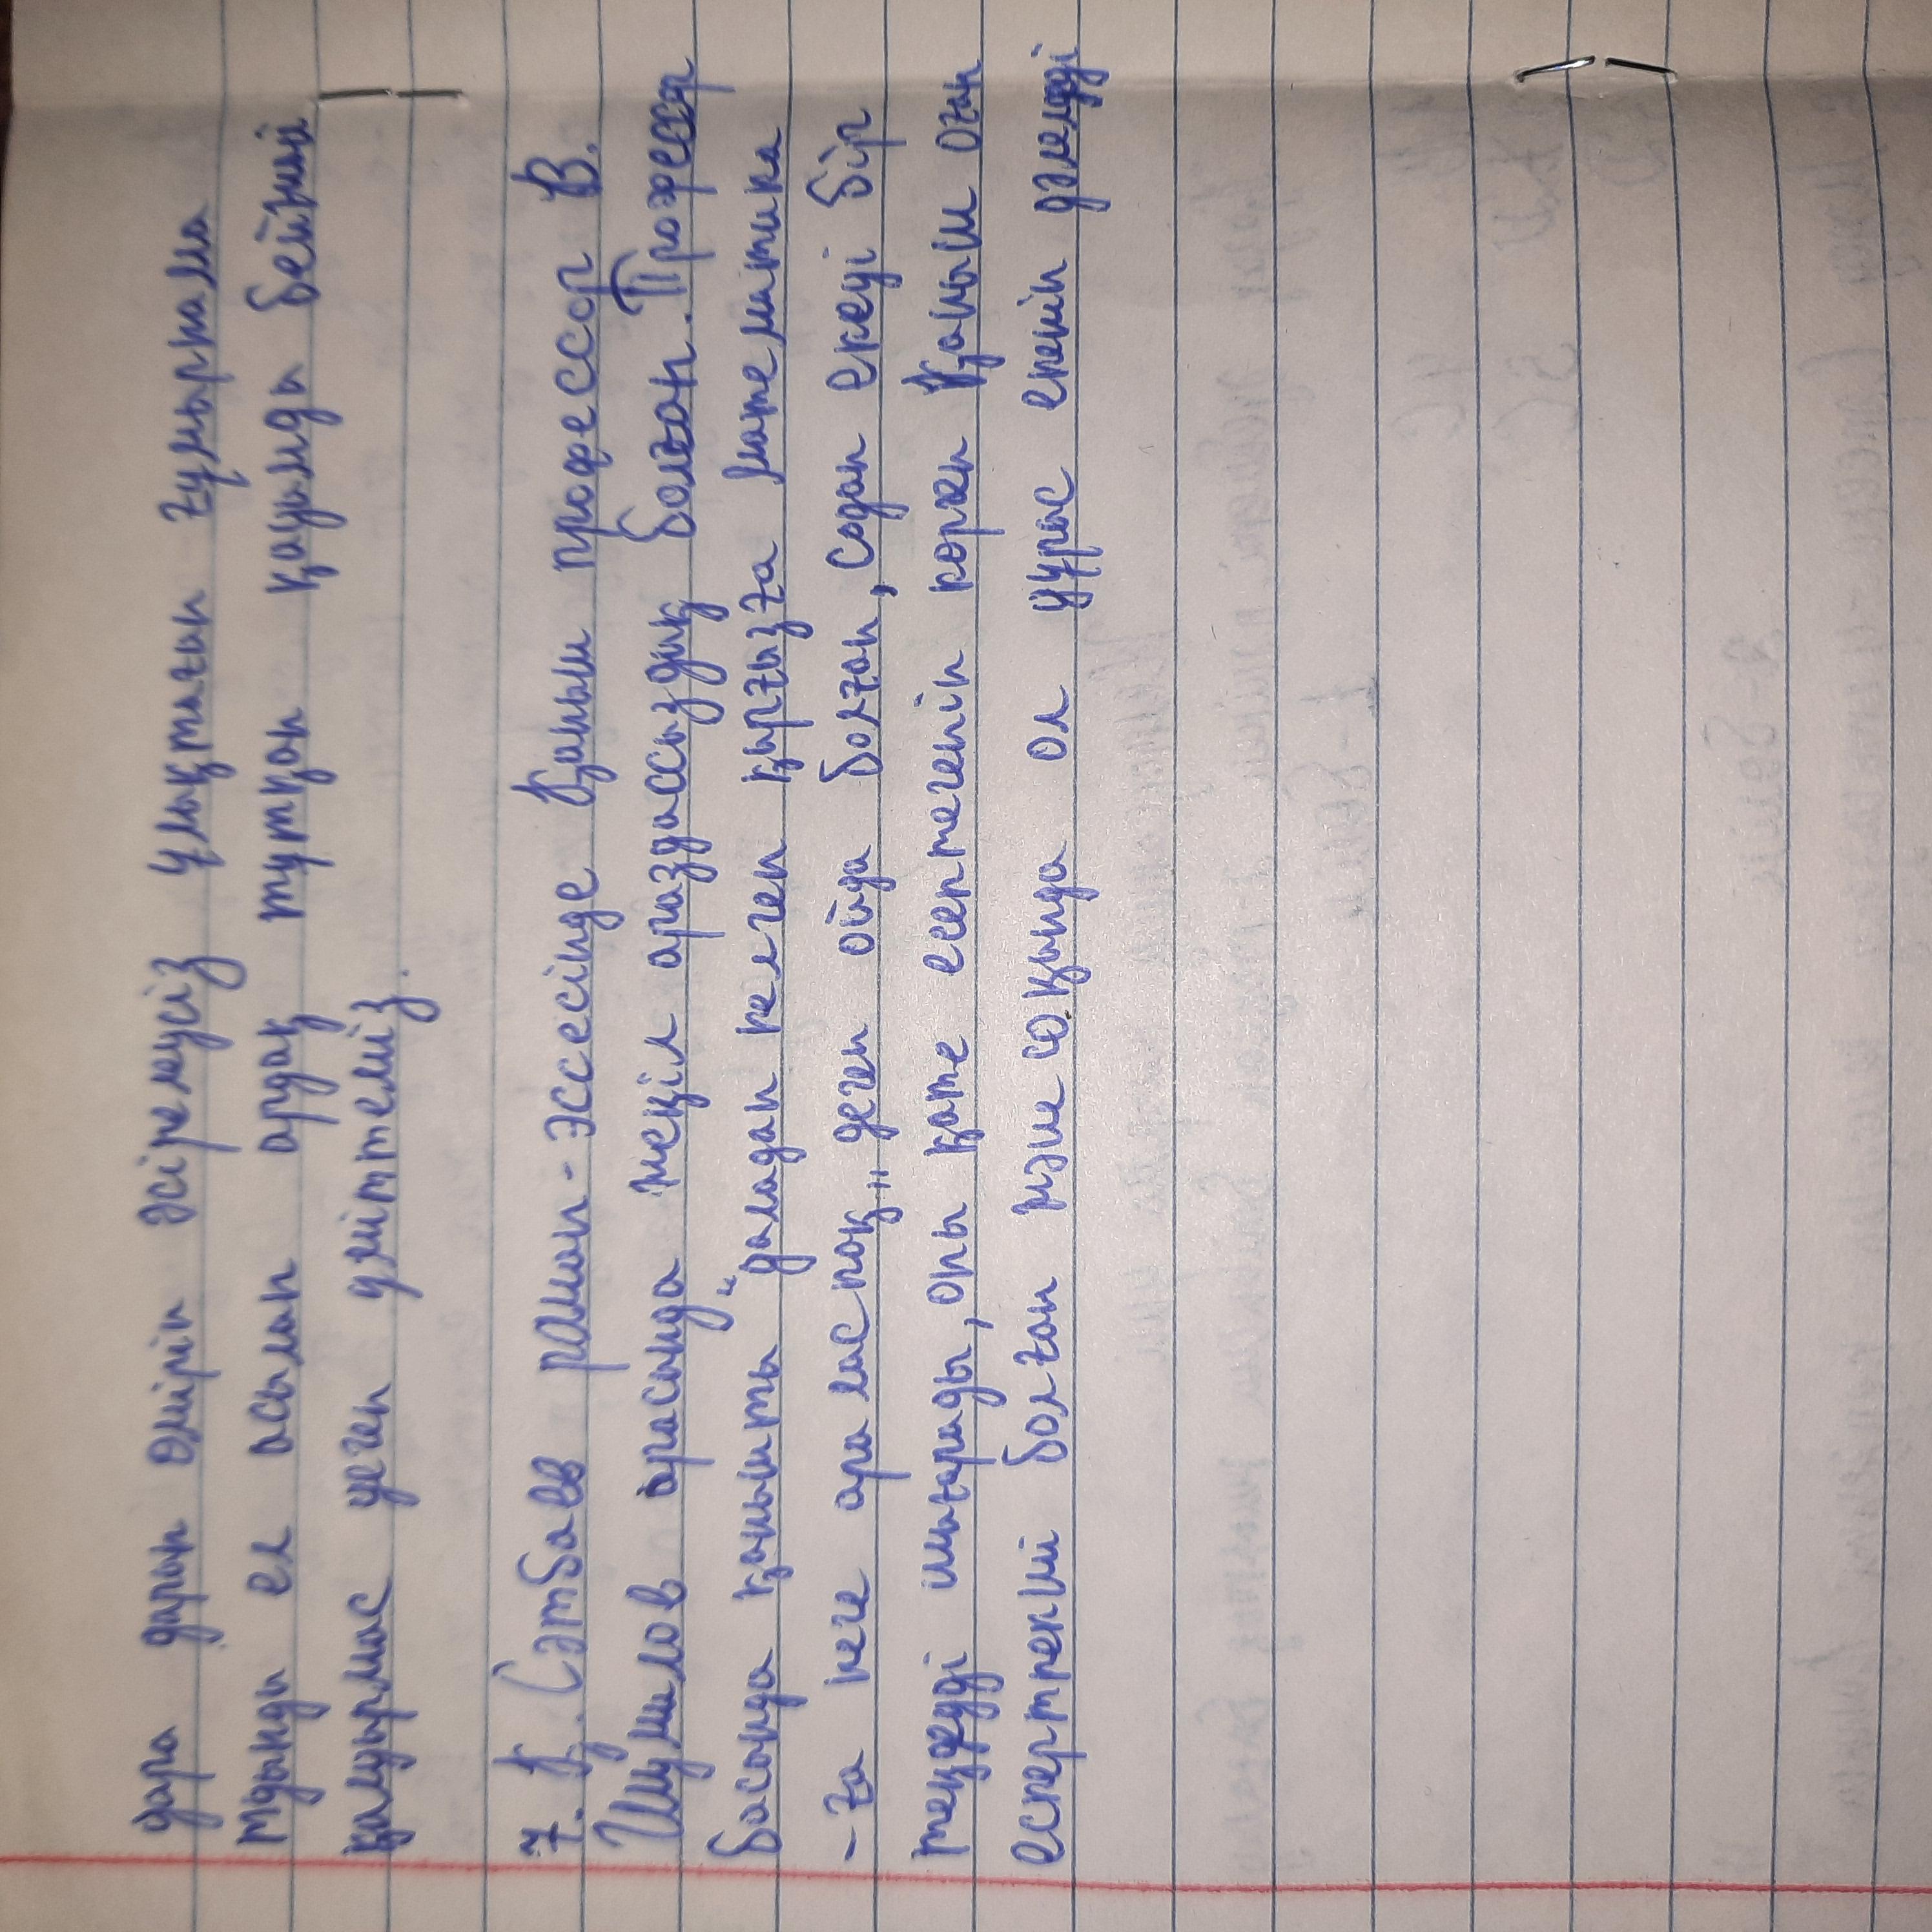 дара дарын өмірін әсірелеусіз ұлықтаған ғұмырнама
Мданды ел асылын ардақ тұтқан қауымды бейжай
қалдырмас деген үміттеміз.
7. Қ. Сәтбаев роман-эссесінде Қаныш профессор В.
Шумилов арасында текіл араздассыздық болған. Профессор
басында Қанышты "даладан келген қырғызға математика
-ға неге араласпоқ" деген ойда болған, содан екеуі бір
теңдеуді шығарады, оны қате есептегенін көрген Қаныш оған
ескертпекші болған және соңында ол дұрыс екенін дәлелді